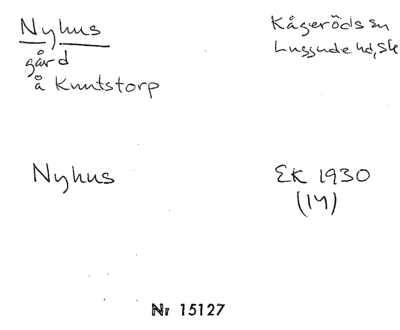 Nyhus
gård
å Knutstorp
Kågeröds sn
Luggude hd, Sk
Nyhus
EK 1930
(14)
Nr 15127